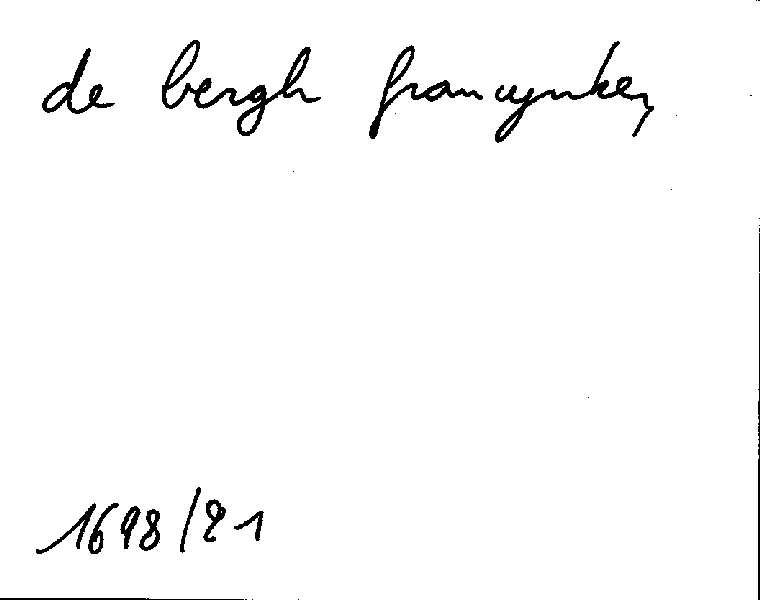 de bergh francynken,
1698/21